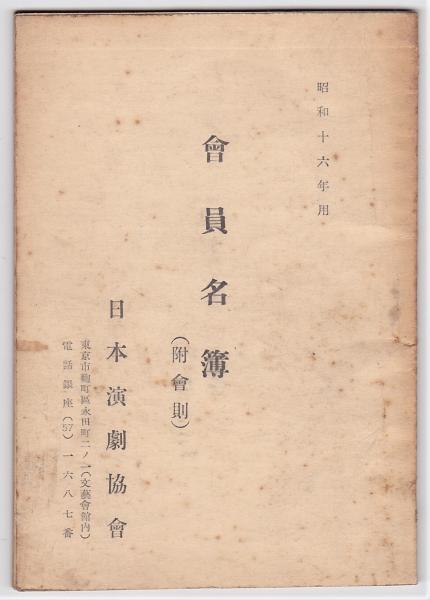 昭和十六年用
會員名簿
（附會則）
日本演劇協會
東京市麹町區永田町二ノ一（文藝會館內）
電話銀座（57）一六八七番